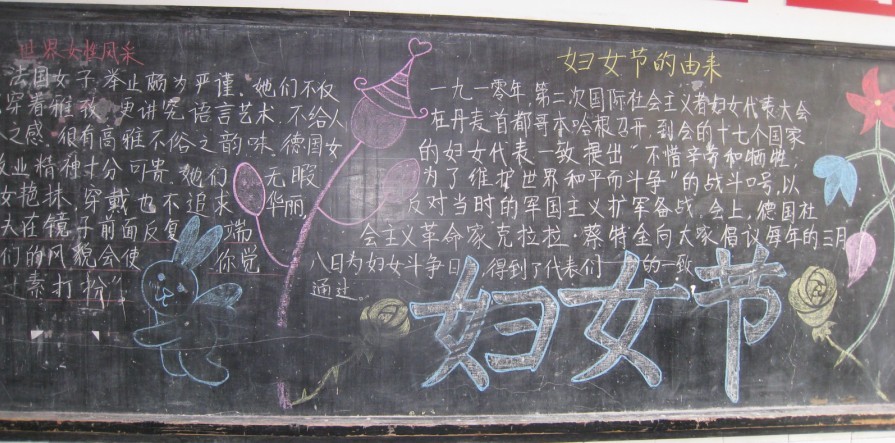 世界女性风采
法国女子举止颇为严谨。她们不仅
穿着雅致,更讲究语言艺术,不给人
之感,很有高雅不俗之韵味。德国女
业精神十分可贵。她们 无暇
艳抹,穿戴也不追求 华丽,
在镜子前面反复 端
们的风貌会使 你觉
素打粉”
妇女节的由来
一九一零年,第二次国际社会主义者妇女代表大会
在丹麦首都哥本哈根召开,到会的十七个国家
的妇女代表一致提出“不惜辛劳和牺牲,
为了维护世界和平而斗争”的战斗口号,以
反对当时的军国主义扩军备战。会上,德国社
会主义革命家克拉拉·蔡特金向大家倡议每年的三月
八日为妇女斗争日,得到了代表们 的一致
通过。
妇女节